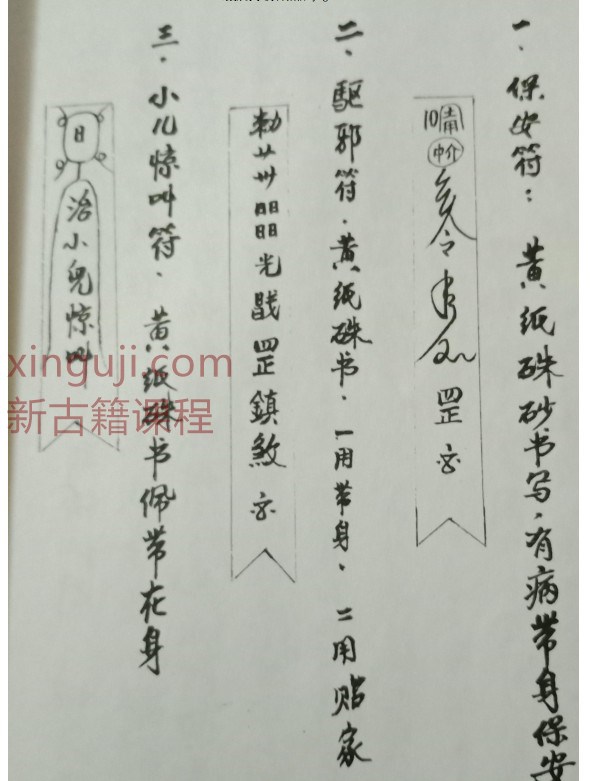 一、保安符：黄纸硃砂书写，有病带身保安
令 罡
二、驱邪符．黄纸硃书．一用带身．二用贴家
勅 晶 光 罡 鎮 煞
三．小儿惊叫符．黄纸硃书佩带在身
日 治小兒惊叫
xinguji.com
新古籍课程